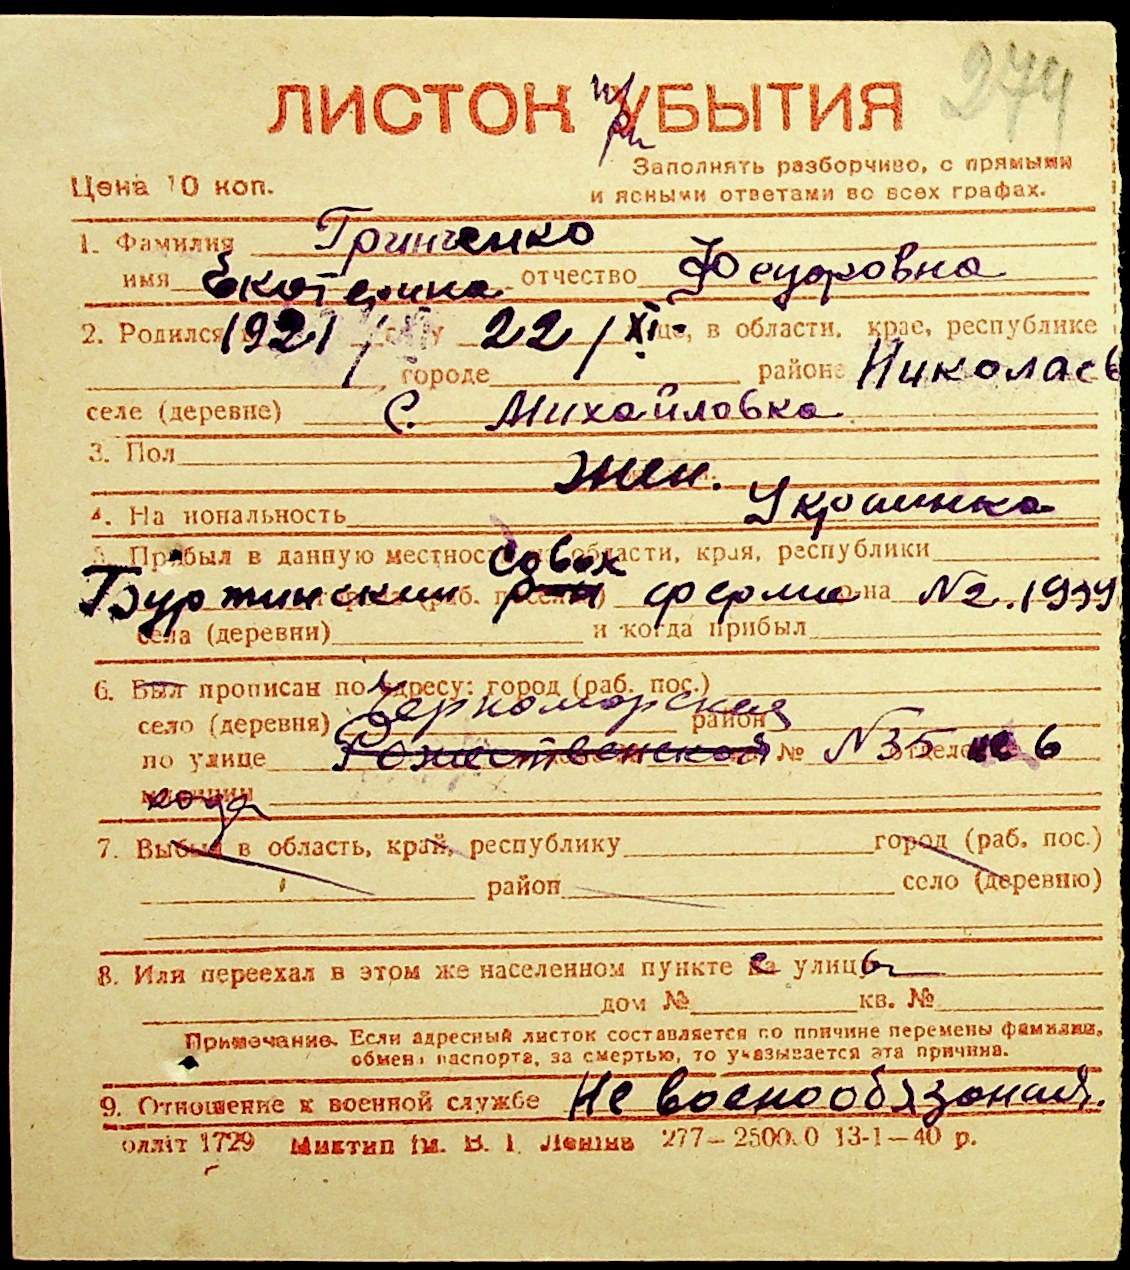 274
ЛИСТОК УБЫТИЯ
при
Заполнять разборчиво, с прямыми
Цена 10 коп.
и ясными ответами во всех графах.
1. Фамилия Гринченко
имя Екатерина отчество Феодоровна
2. Родился 1921 / 22 / XI- це, в области, крае, республике
городе районе Николаев
селе (деревне) С. Михайловка
3. Пол Жен.
4. Национальность Украинка
5. Прибыл в данную местность из области, края, республики
Совох
(раб. поселка) ферма на №2. 1939
села (деревни) и когда прибыл
6. Был прописан по адресу: город (раб. пос.)
село (деревня) Черноморская район
по улице Рожественской № №35 отделе 6
милиции куда
7. Выбыл в область, край, республику город (раб. пос.)
район село (деревню)
8. Или переехал в этом же населенном пункте на улицу
дом № кв. №
Примечание. Если адресный листок составляется по причине перемены фамилии,
обмена паспорта, за смертью, то указывается эта причина.
9. Отношение к военной службе Не военообязоная.
олліт 1729 Миктип ім. В. І. Леніна 277—2500.0 13-1—40 р.